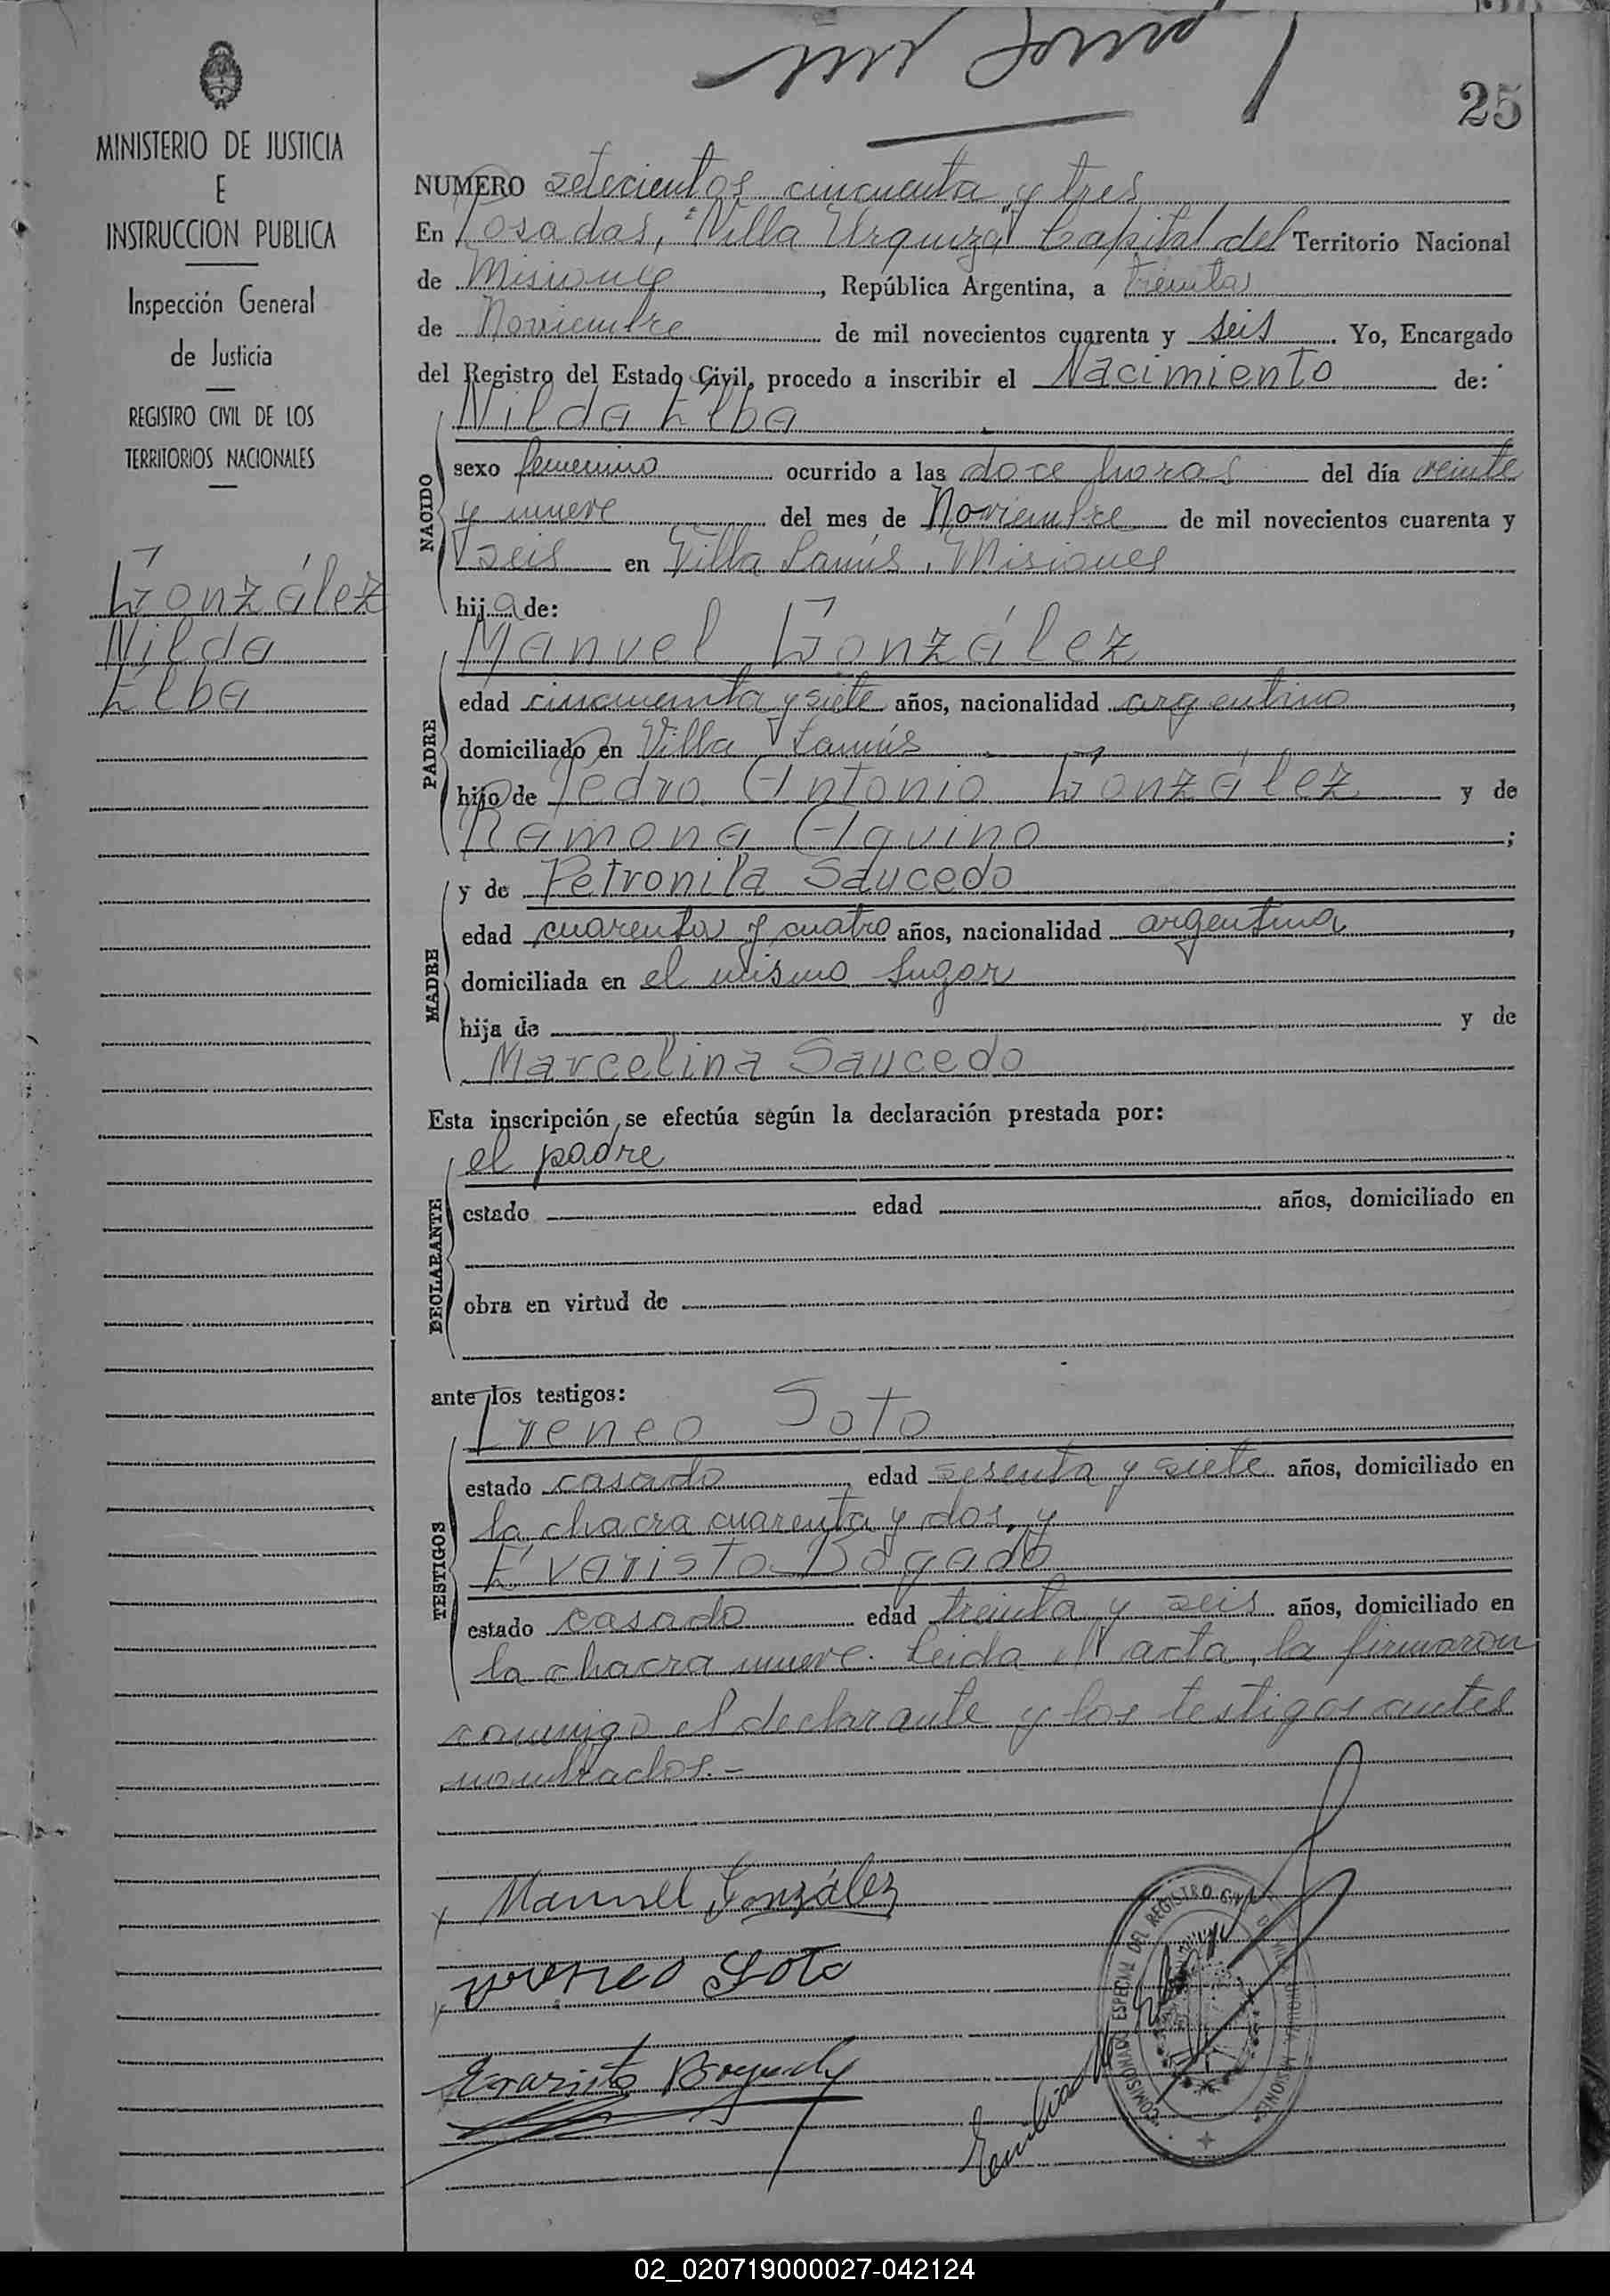 25
MINISTERIO DE JUSTICIA
E
INSTRUCCION PUBLICA
Inspección General
de Justicia
REGISTRO CIVIL DE LOS
TERRITORIOS NACIONALES
González
Nilda
Elba
NUMERO setecientos cincuenta y tres
En Posadas, "Villa Urquiza" Capital del Territorio Nacional
de Misiones, República Argentina, a treinta
de Noviembre de mil novecientos cuarenta y seis. Yo, Encargado
del Registro del Estado Civil, procedo a inscribir el Nacimiento de:
Nilda Elba
NACIDO
sexo femenino ocurrido a las doce horas del día veinte
y nueve del mes de Noviembre de mil novecientos cuarenta y
seis en Villa Lanús, Misiones
hija de:
Manuel González
PADRE
edad cincuenta y siete años, nacionalidad argentino,
domiciliado en Villa Lanús
hijo de Pedro Antonio González y de
Ramona Aquino;
MADRE
y de Petronila Saucedo
edad cuarenta y cuatro años, nacionalidad argentina,
domiciliada en el mismo lugar
hija de y de
Marcelina Saucedo
Esta inscripción se efectúa según la declaración prestada por:
el padre
DECLARANTE
estado edad años, domiciliado en
obra en virtud de
ante los testigos:
Ireneo Soto
TESTIGOS
estado casado edad sesenta y siete años, domiciliado en
la chacra cuarenta y dos, y
Evaristo Bogado
estado casado edad treinta y seis años, domiciliado en
la chacra nueve. Leida el acta, la firmaron
conmigo el declarante y los testigos antes
nombrados.-
Manuel González
Ireneo Soto
Evaristo Bogado
COMISIONADO ESPECIAL DEL REGISTRO CIVIL
MISIONES
Emilio
02_020719000027-042124